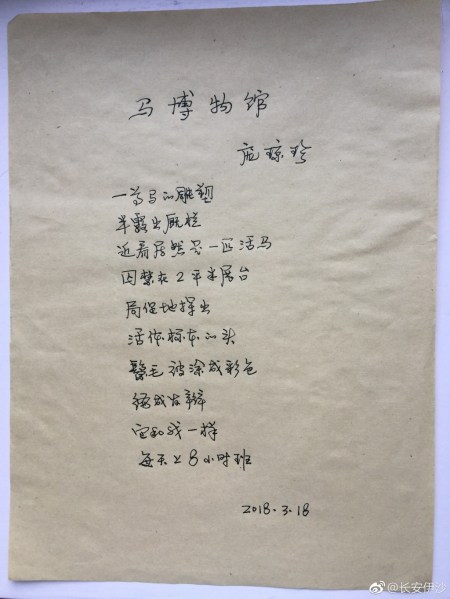 马博物馆
庞琼珍
一等马的雕塑
半露出厩栏
近看居然是一匹活马
囚禁在2平米展台
局促地探出
活体标本的头
鬃毛被涂成彩色
编成发辫
它和我一样
每天上8小时班
2018.3.18
@长安伊沙